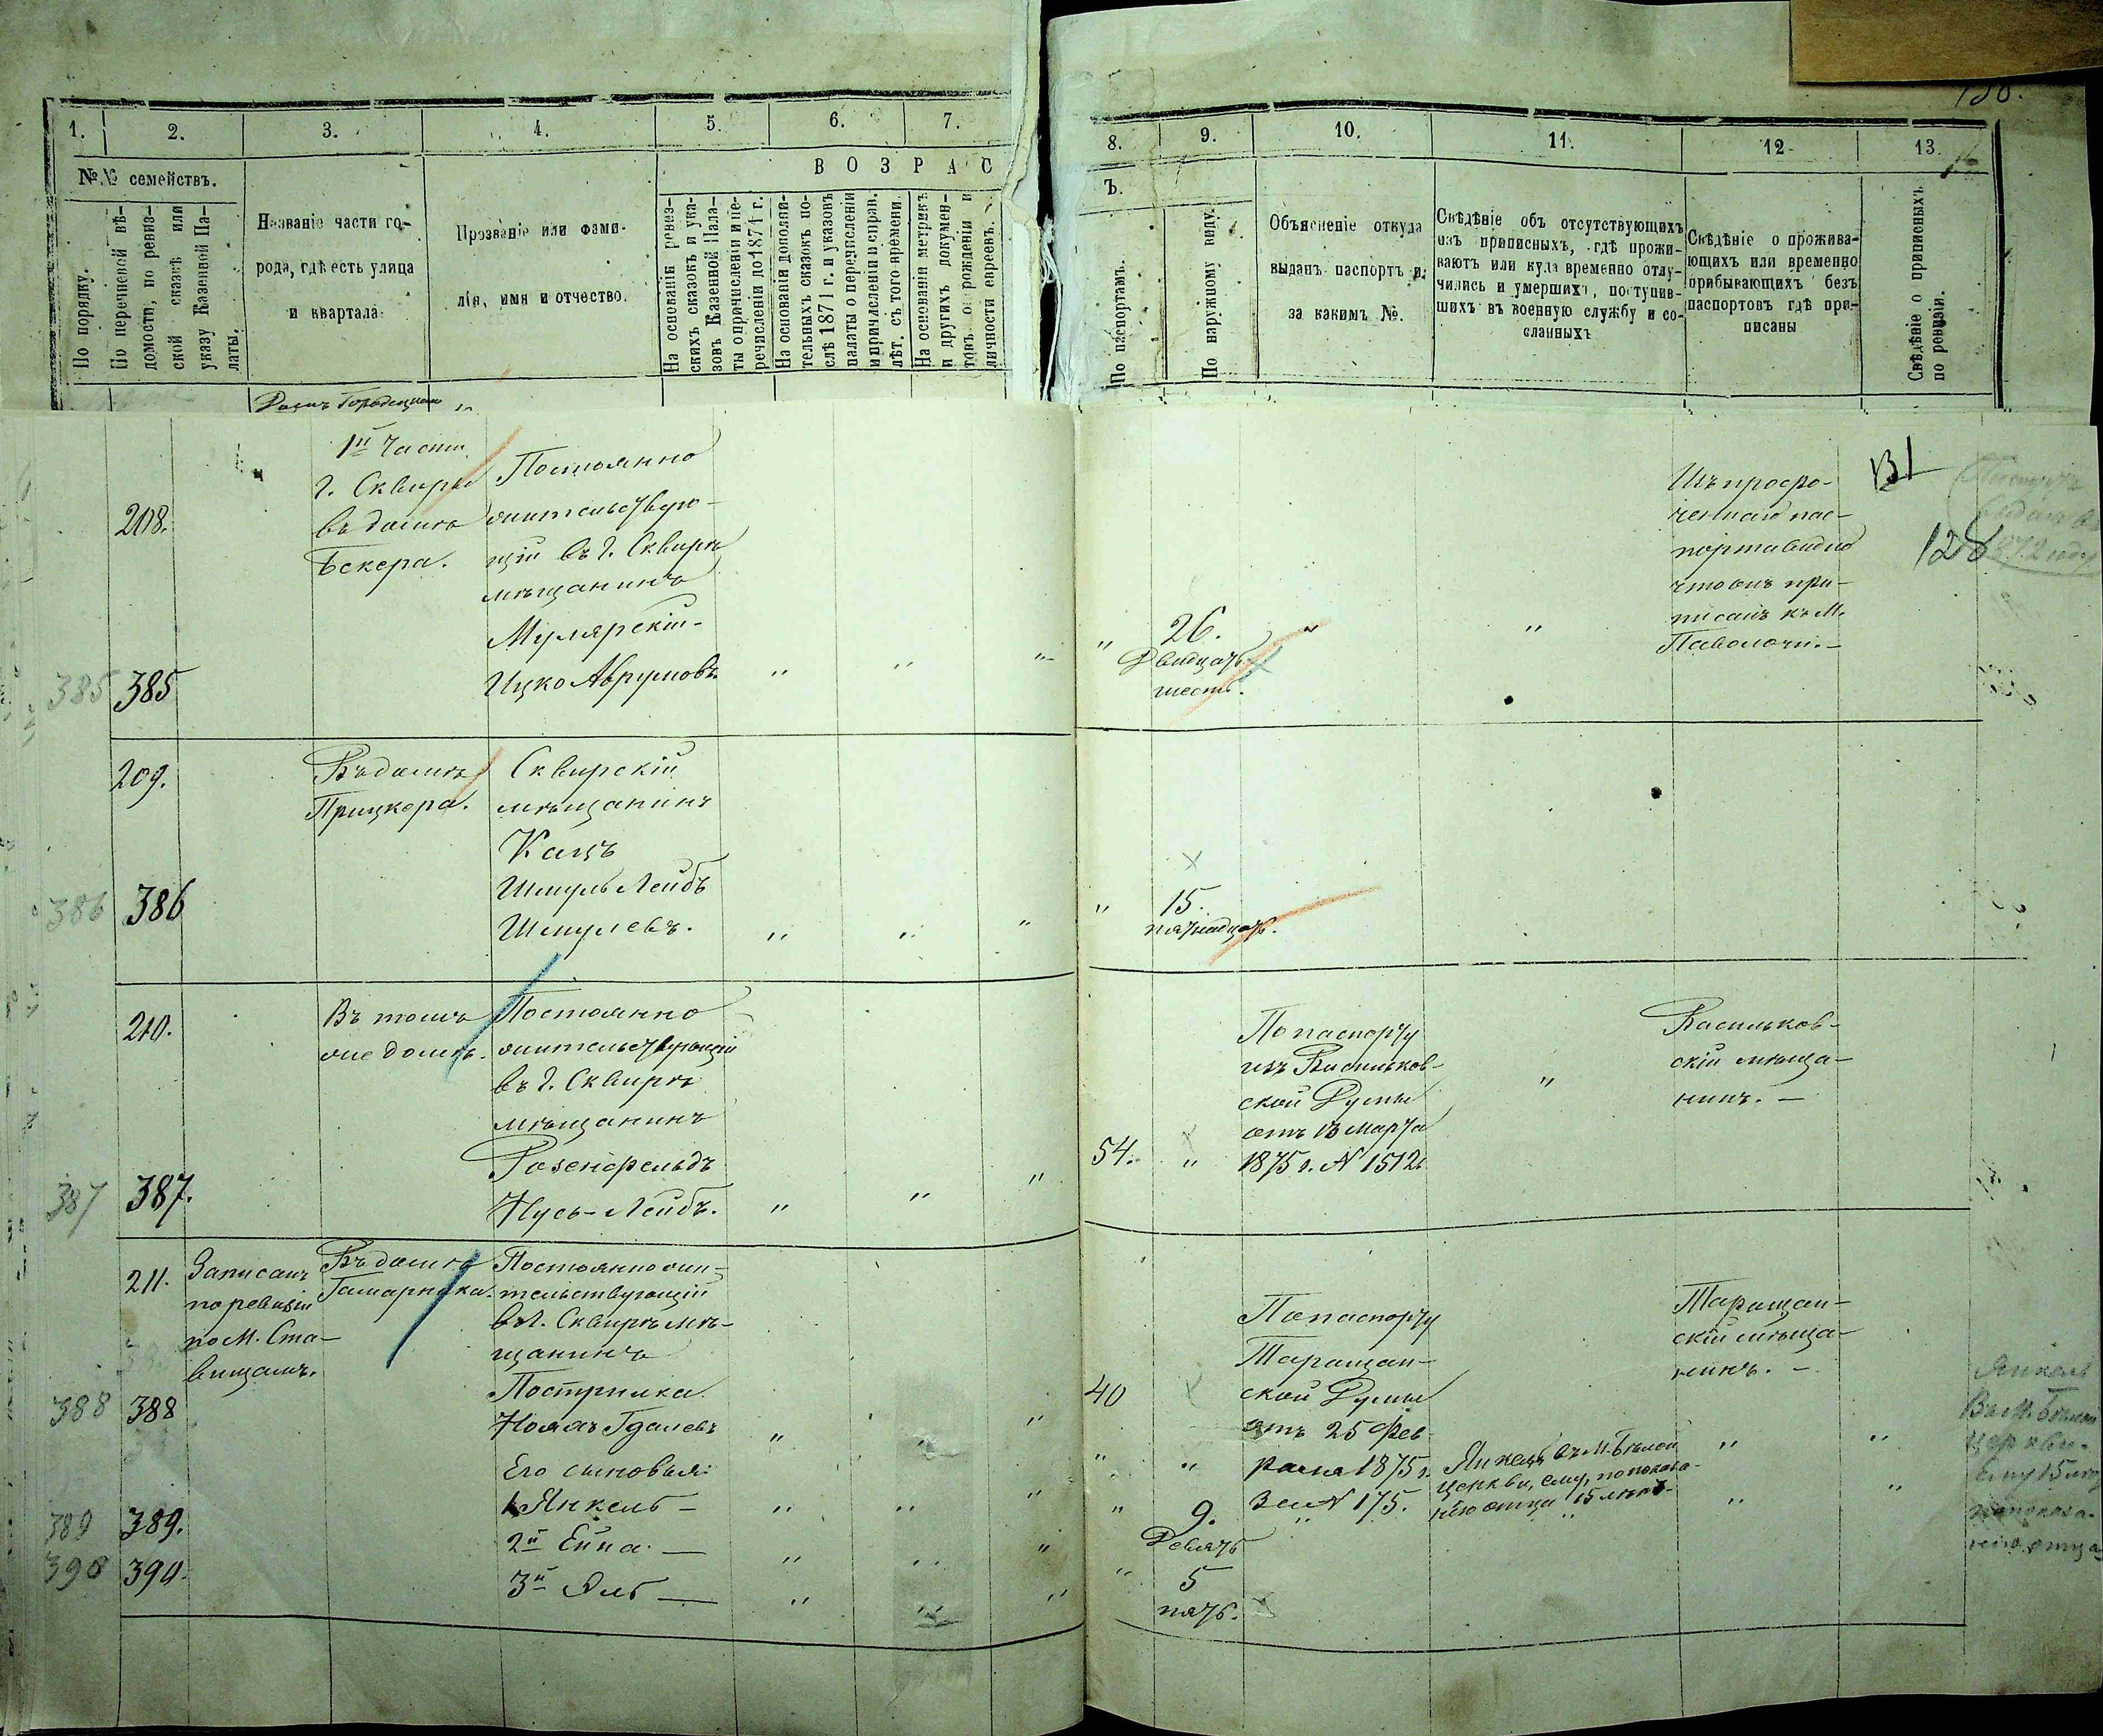 1.
2.
3.
4.
5.
6.
7.
№№ семействъ.
ВОЗРАС
По порядку.
По перечневой вѣ-
домости, по ревиз-
ской сказкѣ или
указу Казенной Па-
латы.
Названіе части го-
рода, гдѣ есть улица
и квартала.
Прозваніе или фами-
лія, имя и отчество.
На основаніи ревиз-
скихъ сказокъ и ука-
зовъ Казенной Пала-
ты о причисленіи и пе-
речисленіи до 1871 г.
На основаніи дополни-
тельныхъ сказокъ по-
слѣ 1871 г. и указовъ
палаты о перечисленіи
и причисленіи и справ.
лѣт. съ того времени.
На основаніи метрикъ
и другихъ докумен-
товъ о рожденіи и
личности евреевъ.
8.
9.
10.
11.
12
13.
Ъ.
По паспортамъ.
По наружному виду.
Объясненіе откуда
выданъ паспортъ и
за какимъ №.
Свѣдѣніе объ отсутствующихъ
изъ приписныхъ, гдѣ прожи-
ваютъ или куда временно отлу-
чились и умершихъ, поступив-
шихъ въ военную службу и со-
сланныхъ
Свѣдѣніе о прожива-
ющихъ или временно
прибывающихъ безъ
паспортовъ гдѣ при-
писаны
Свѣдѣніе о приписныхъ
по ревизіи.
208.
385 385
1й части
г. Сквиры
въ домѣ
Бекера.
Постоянно
жительствую-
щій въ г. Сквирѣ
мѣщанинъ
Мулярскій
Ицко Аврумовъ
" " "
" 26. " "
Двадцать
шесть.
Изъ просро-
ченнаго пас-
порта видно
что онъ при-
писанъ къ М.
Паволочи.-
131
128
209.
386 386
Въ домѣ
Прицкера.
Сквирскій
мѣщанинъ
Кацъ
Шмуль Лейбъ
Шмулевъ.
" " "
" 15.
пятнадцать.
210.
387 387.
Въ томъ
же домѣ.
Постоянно
жительствующій
въ г. Сквирѣ
мѣщанинъ
Розенфельдъ
Нусь-Лейбъ.
" " "
54. "
По паспорту
изъ Васильков-
ской Думы
отъ 13 Марта
1875 г. N 1512
"
Васильков-
скій мѣща-
нинъ. -
211.
388 388
389 389.
390 390.
Записанъ
по ревизіи
по М. Ста-
вищамъ.
Въ домѣ
Гамарника.
Постоянно жи-
тельствующій
въ г. Сквирѣ мѣ-
щанинъ
Пострилка
Гдалевъ
Его сыновья:
1 Янкель -
2й
3й
40
" 9.
Девять
" 5
пять.
По паспорту
Таращан-
ской Думы
отъ 25 Фев-
раля 1875 г.
за N 175.
Янкель въ М. Бѣлой
Церкви, ему, по показа-
нію отца 15 лѣтъ-
Таращан-
скій мѣща-
нинъ. -
Янкель
Въ М. Бѣлой
Церкви.
ему 15 лѣтъ
по показа-
нію отца